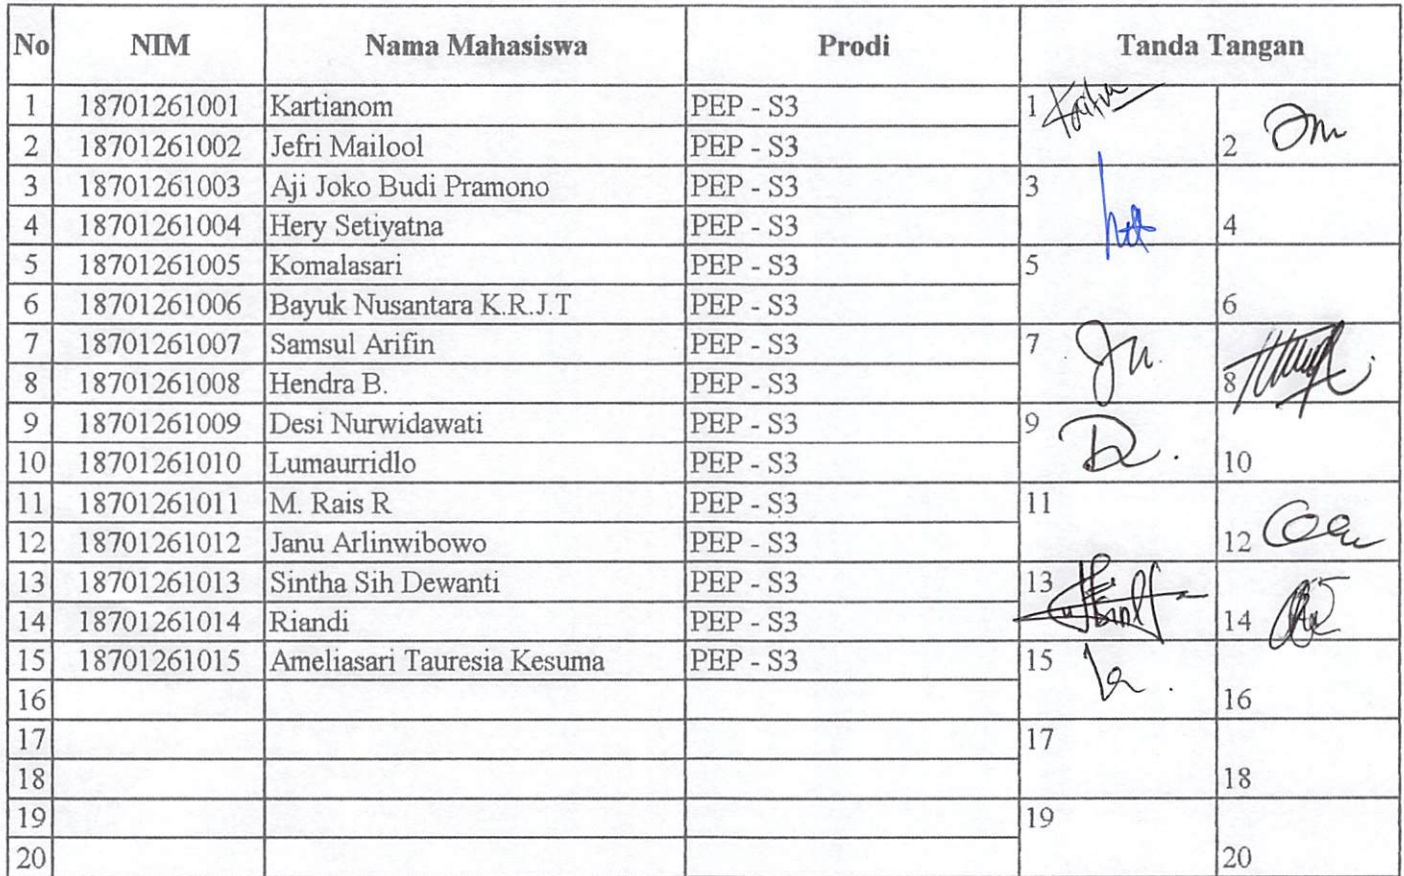 No NIM Nama Mahasiswa Prodi Tanda Tangan
1 18701261001 Kartianom PEP - S3 1
2 18701261002 Jefri Mailool PEP - S3 2
3 18701261003 Aji Joko Budi Pramono PEP - S3 3
4 18701261004 Hery Setiyatna PEP - S3 4
5 18701261005 Komalasari PEP - S3 5
6 18701261006 Bayuk Nusantara K.R.J.T PEP - S3 6
7 18701261007 Samsul Arifin PEP - S3 7
8 18701261008 Hendra B. PEP - S3 8
9 18701261009 Desi Nurwidawati PEP - S3 9
10 18701261010 Lumaurridlo PEP - S3 10
11 18701261011 M. Rais R PEP - S3 11
12 18701261012 Janu Arlinwibowo PEP - S3 12
13 18701261013 Sintha Sih Dewanti PEP - S3 13
14 18701261014 Riandi PEP - S3 14
15 18701261015 Ameliasari Tauresia Kesuma PEP - S3 15
16 16
17 17
18 18
19 19
20 20